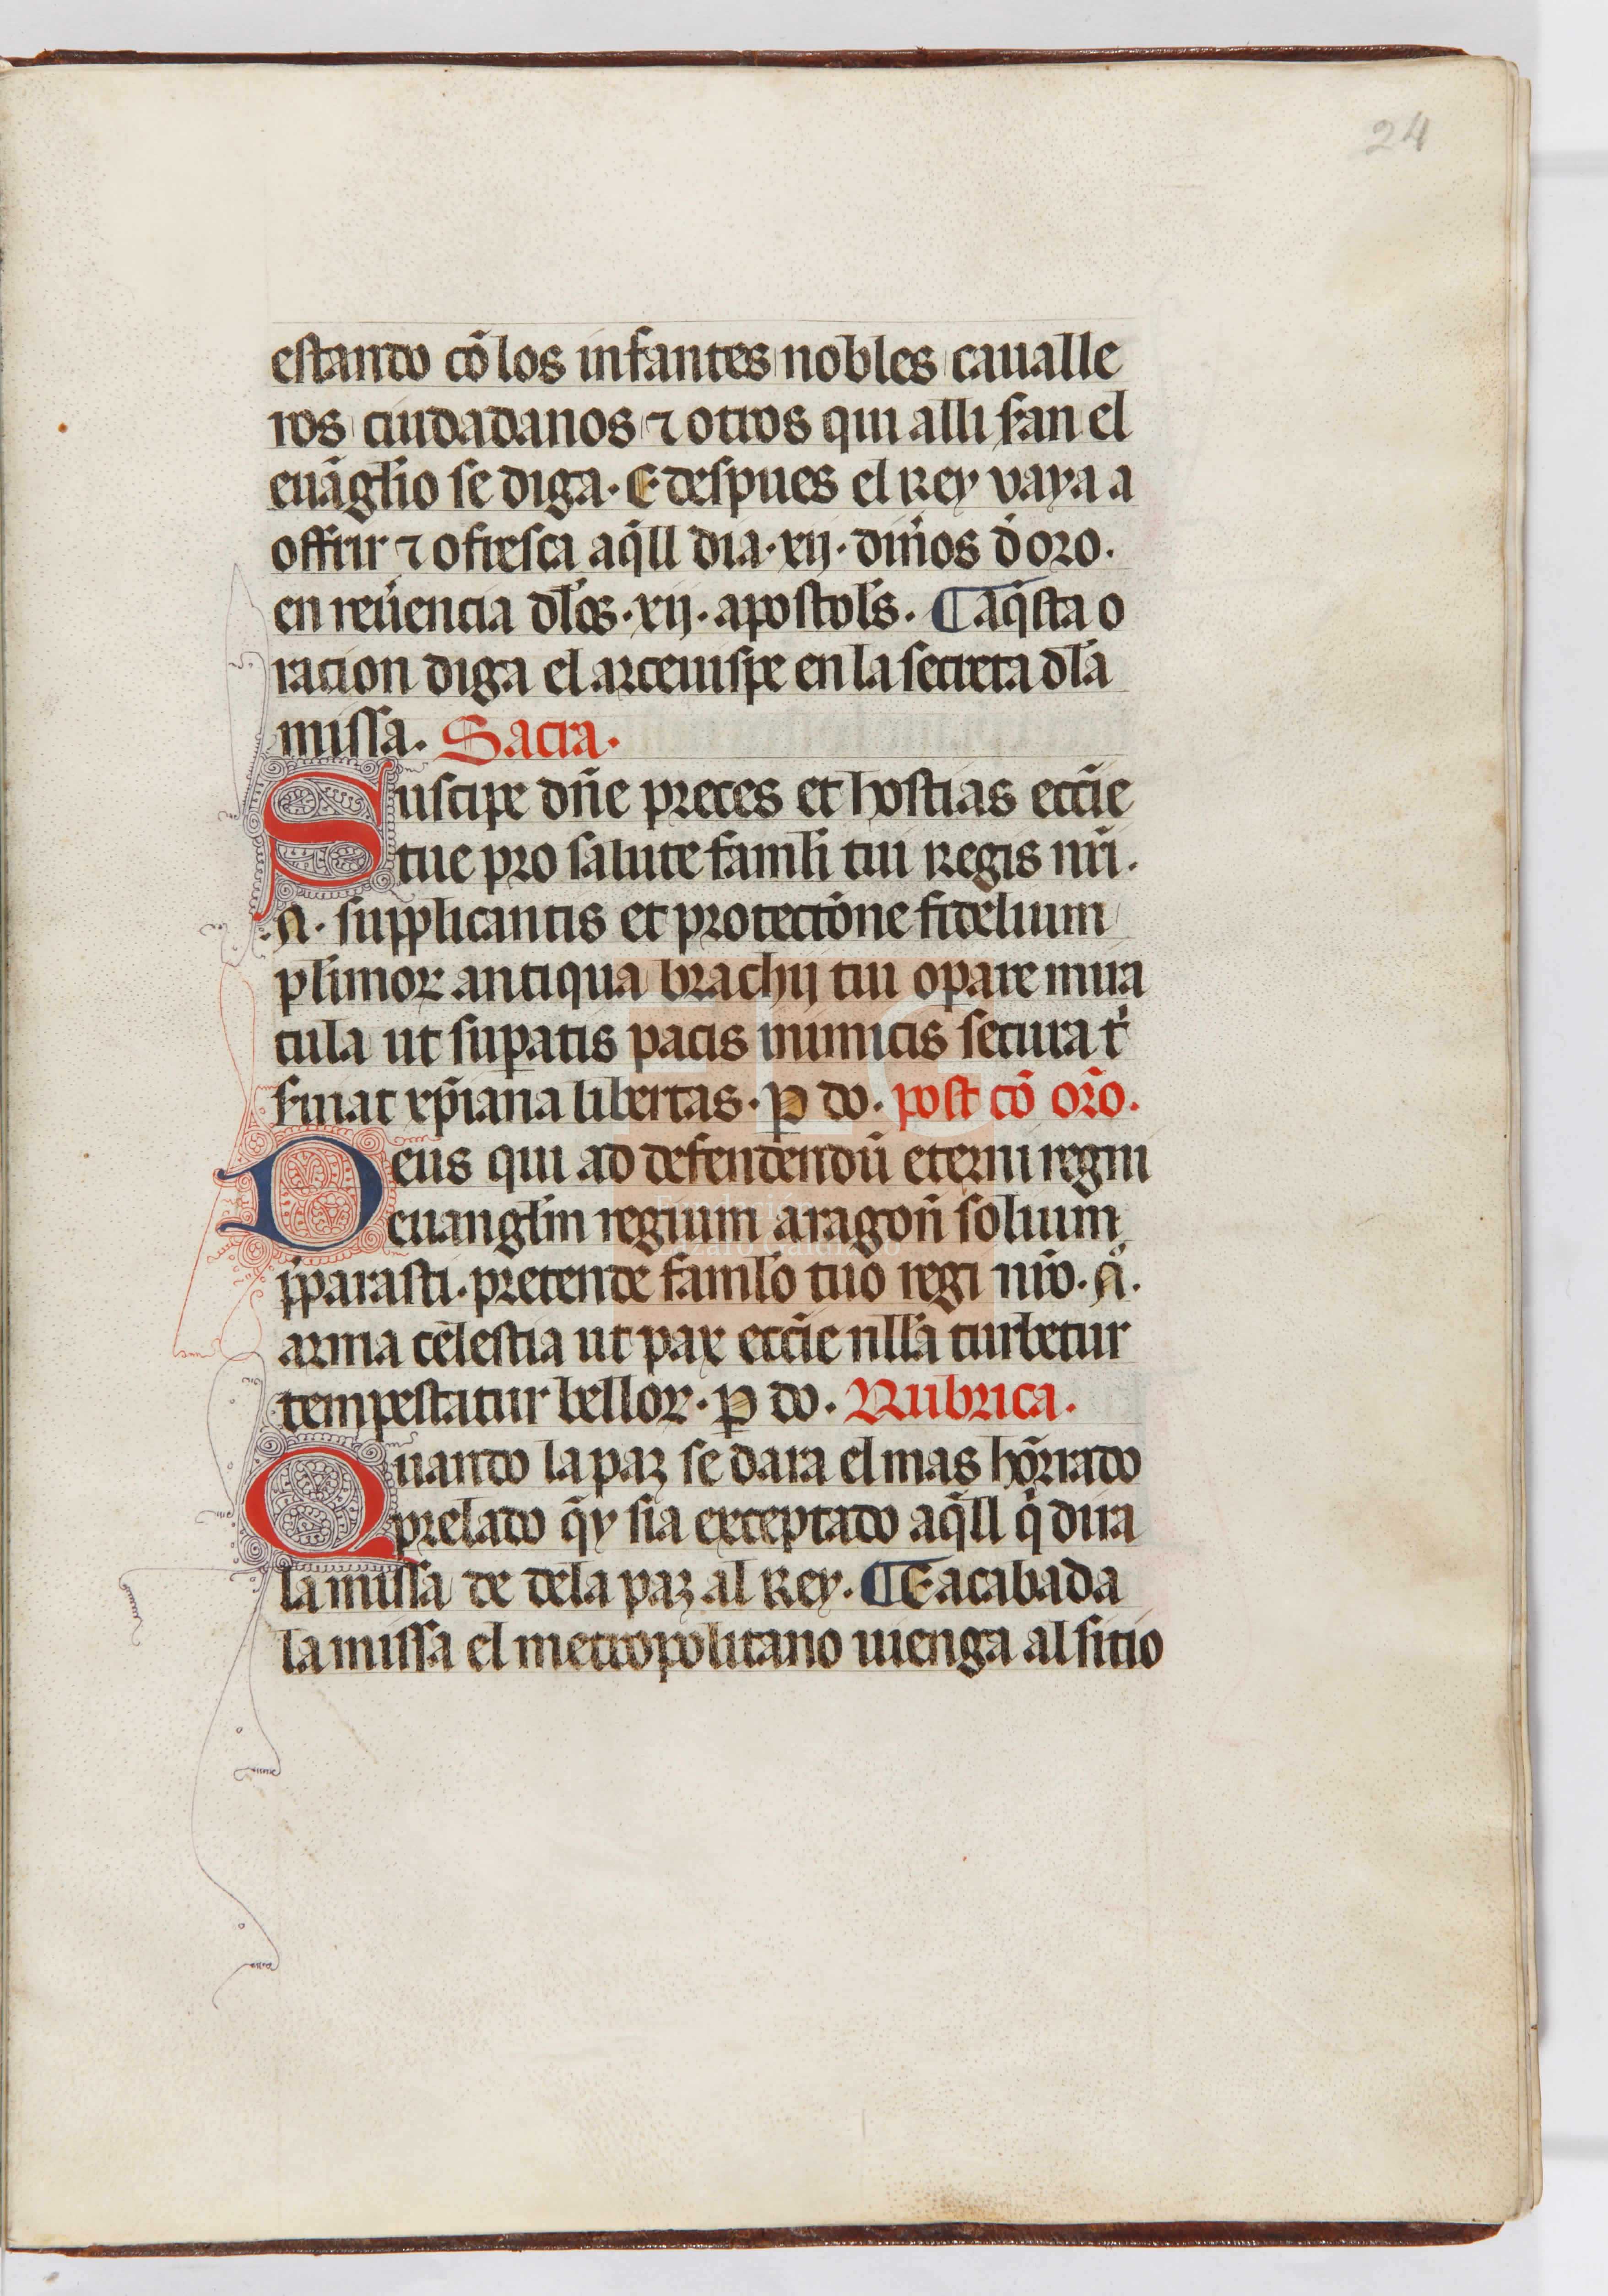 24
estando cō los infantes nobles caualle
ros ciudadanos ⁊ otros qui alli san el
euāgl̄io se diga. E despues el Rey vaya a
offrir ⁊ ofresca aq̄ll dia .xij. din̄os d̓ oro.
en reu̓encia dl̄os .xij. apostol̄s. ¶ Aq̄sta o
racion diga el arceuispe en la secreta dl̄a
missa. Sacra.
Suscipe dn̄e preces et hostias eccīe
tue pro salute faml̄i tui Regis nr̄i.
.A. supplicantis et protectōne fidelium
pl̄imoꝝ antiqua brachij tui oꝑare mira
cula ut suꝑatis pacis inimicis secura t̓
s̓uiat xp̄iana libertas. ꝑ do. post cō or̄o.
Deus qui ad defendendū eterni regni
euangl̄m regium aragon̄ solium
p̄parasti. pretende faml̄o tuo regi nr̄o. A.
arma celestia ut pax eccīe nll̄a turbetur
tempestatur belloꝝ. ꝑ do. Rubrica.
Quando la paz se dara el mas hōrrado
prelado q̄ y sia exceptado aq̄ll q̄ dira
la missa de dela paz al Rey. ¶ E acabada
la missa el metropolitano uienga al sitio
FLG
Fundación
Lázaro Galdiano